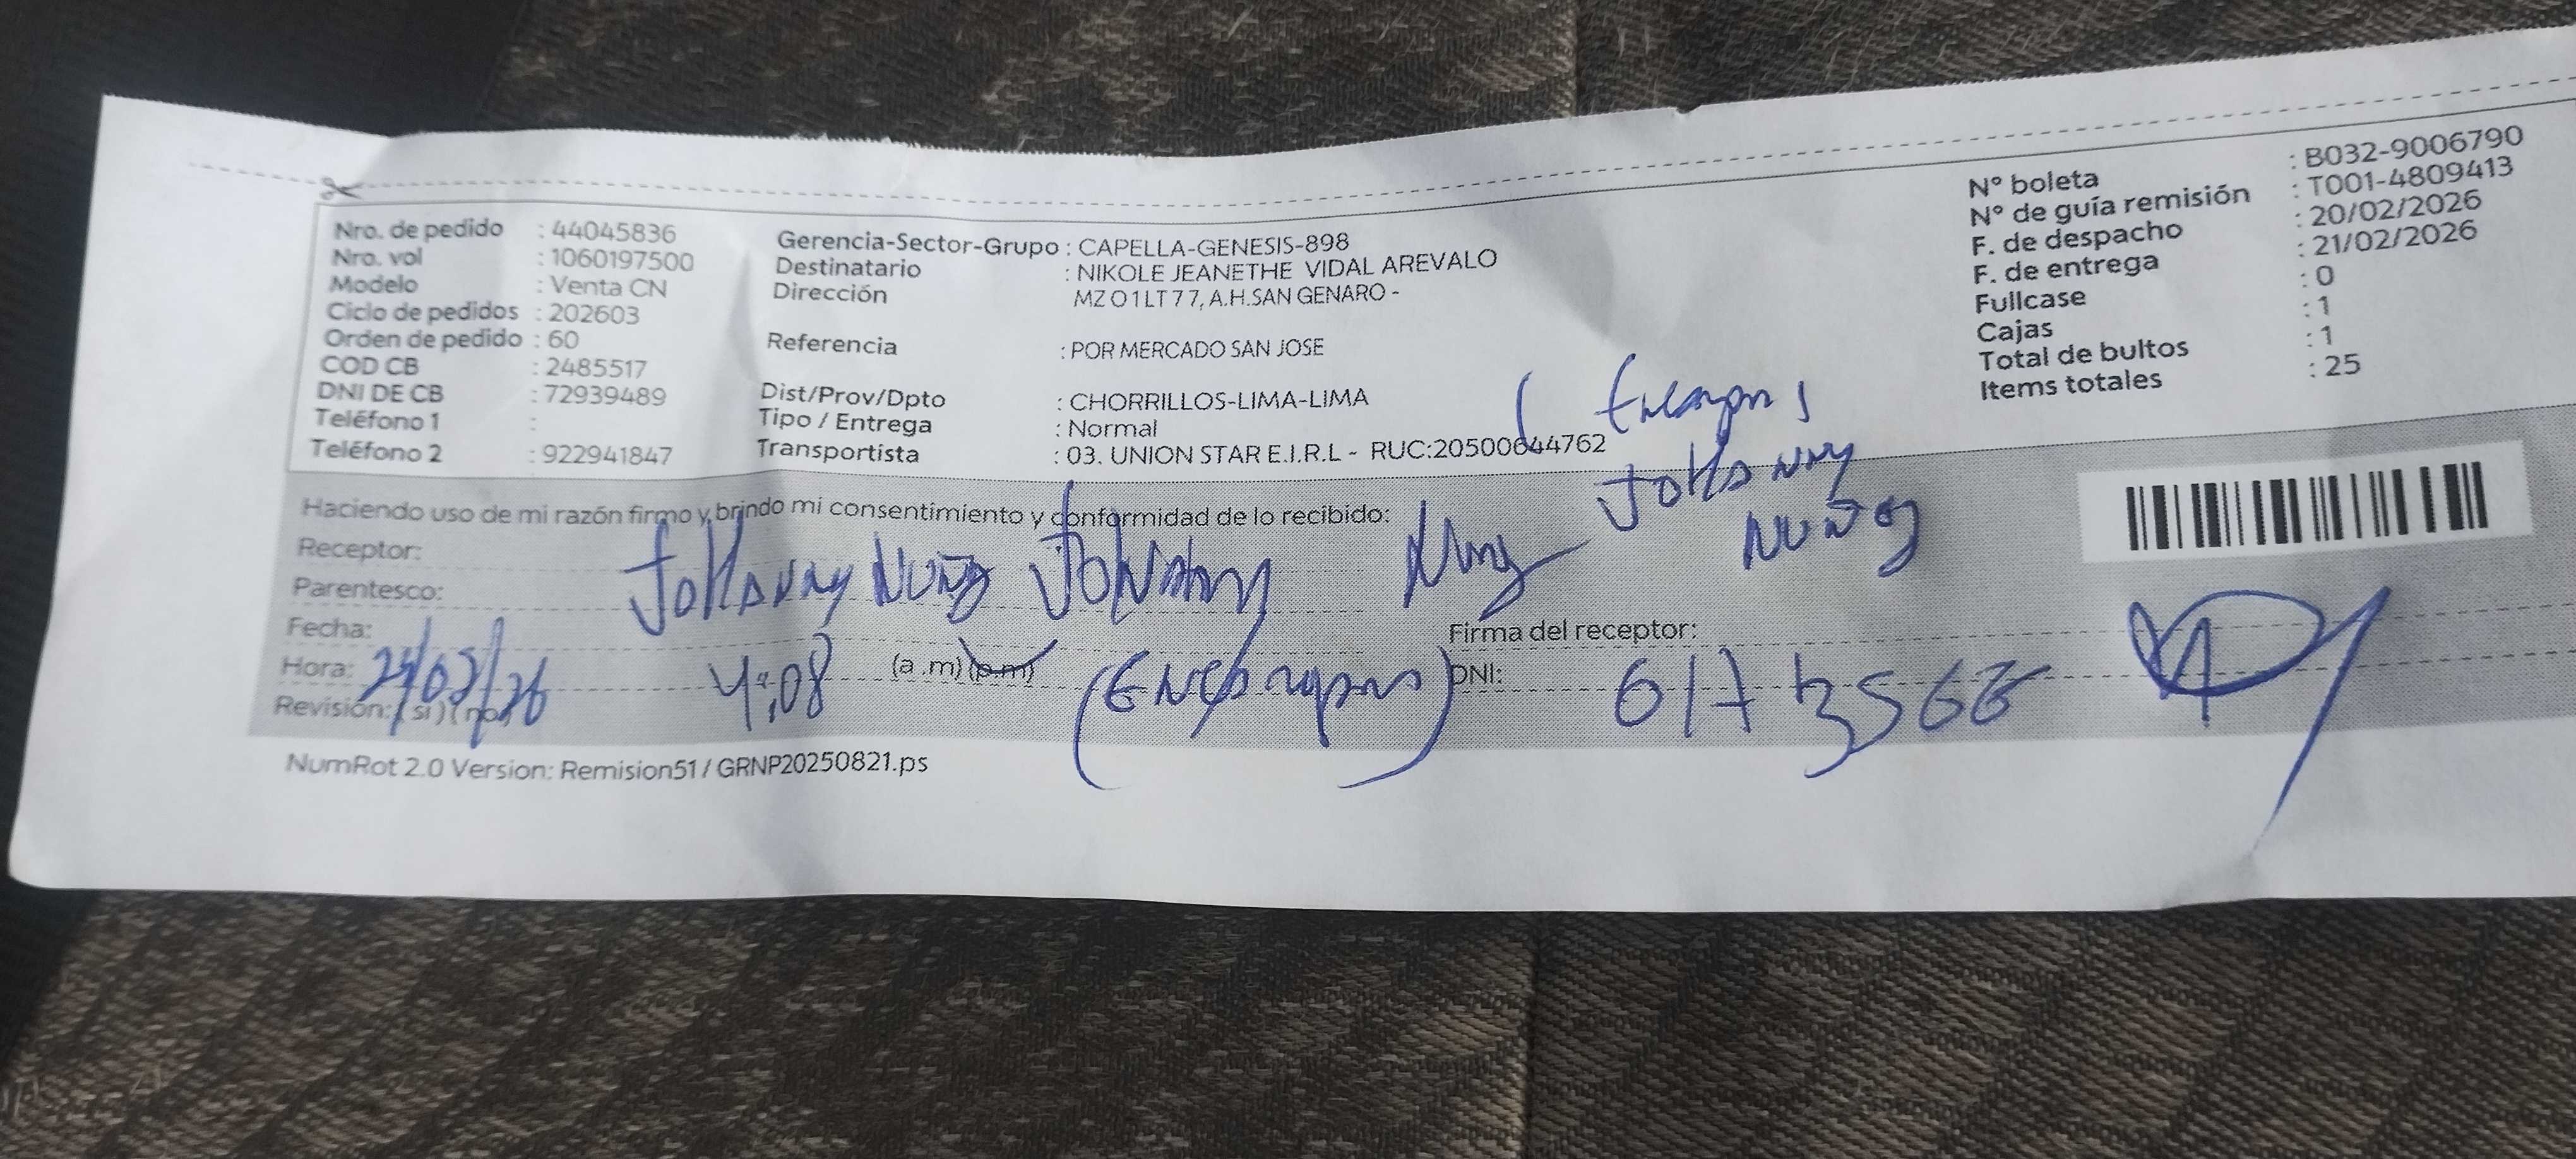 Nro. de pedido : 44045836
Nro. vol : 1060197500
Modelo : Venta CN
Ciclo de pedidos : 202603
Orden de pedido : 60
COD CB : 2485517
DNI DE CB : 72939489
Teléfono 1 :
Teléfono 2 : 922941847
Gerencia-Sector-Grupo : CAPELLA-GENESIS-898
Destinatario : NIKOLE JEANETHE VIDAL AREVALO
Dirección MZ O 1 LT 7 7, A.H.SAN GENARO -
Referencia : POR MERCADO SAN JOSE
Dist/Prov/Dpto : CHORRILLOS-LIMA-LIMA
Tipo / Entrega : Normal
Transportista : 03. UNION STAR E.I.R.L - RUC:20500644762
N° boleta : B032-9006790
N° de guía remisión : T001-4809413
F. de despacho : 20/02/2026
F. de entrega : 21/02/2026
Fullcase : 0
Cajas : 1
Total de bultos : 1
Items totales : 25
Johanny
Nuñez
Haciendo uso de mi razón firmo y brindo mi consentimiento y conformidad de lo recibido:
Receptor: Johanny Nuñez
Parentesco:
Fecha:
Hora: 4:08 (a .m) (p.m)
Revisión: ( si ) ( no )
Firma del receptor:
DNI:
NumRot 2.0 Version: Remision51 / GRNP20250821.ps